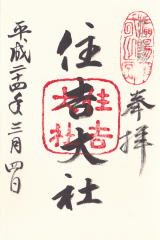 奉拝
住吉大社
住吉大社
平成二十四年三月四日